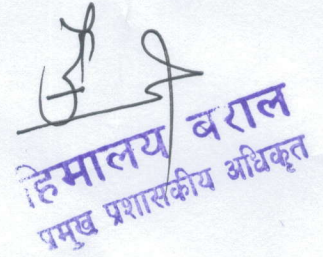 हिमालय बराल
प्रमुख प्रशासकीय अधिकृत